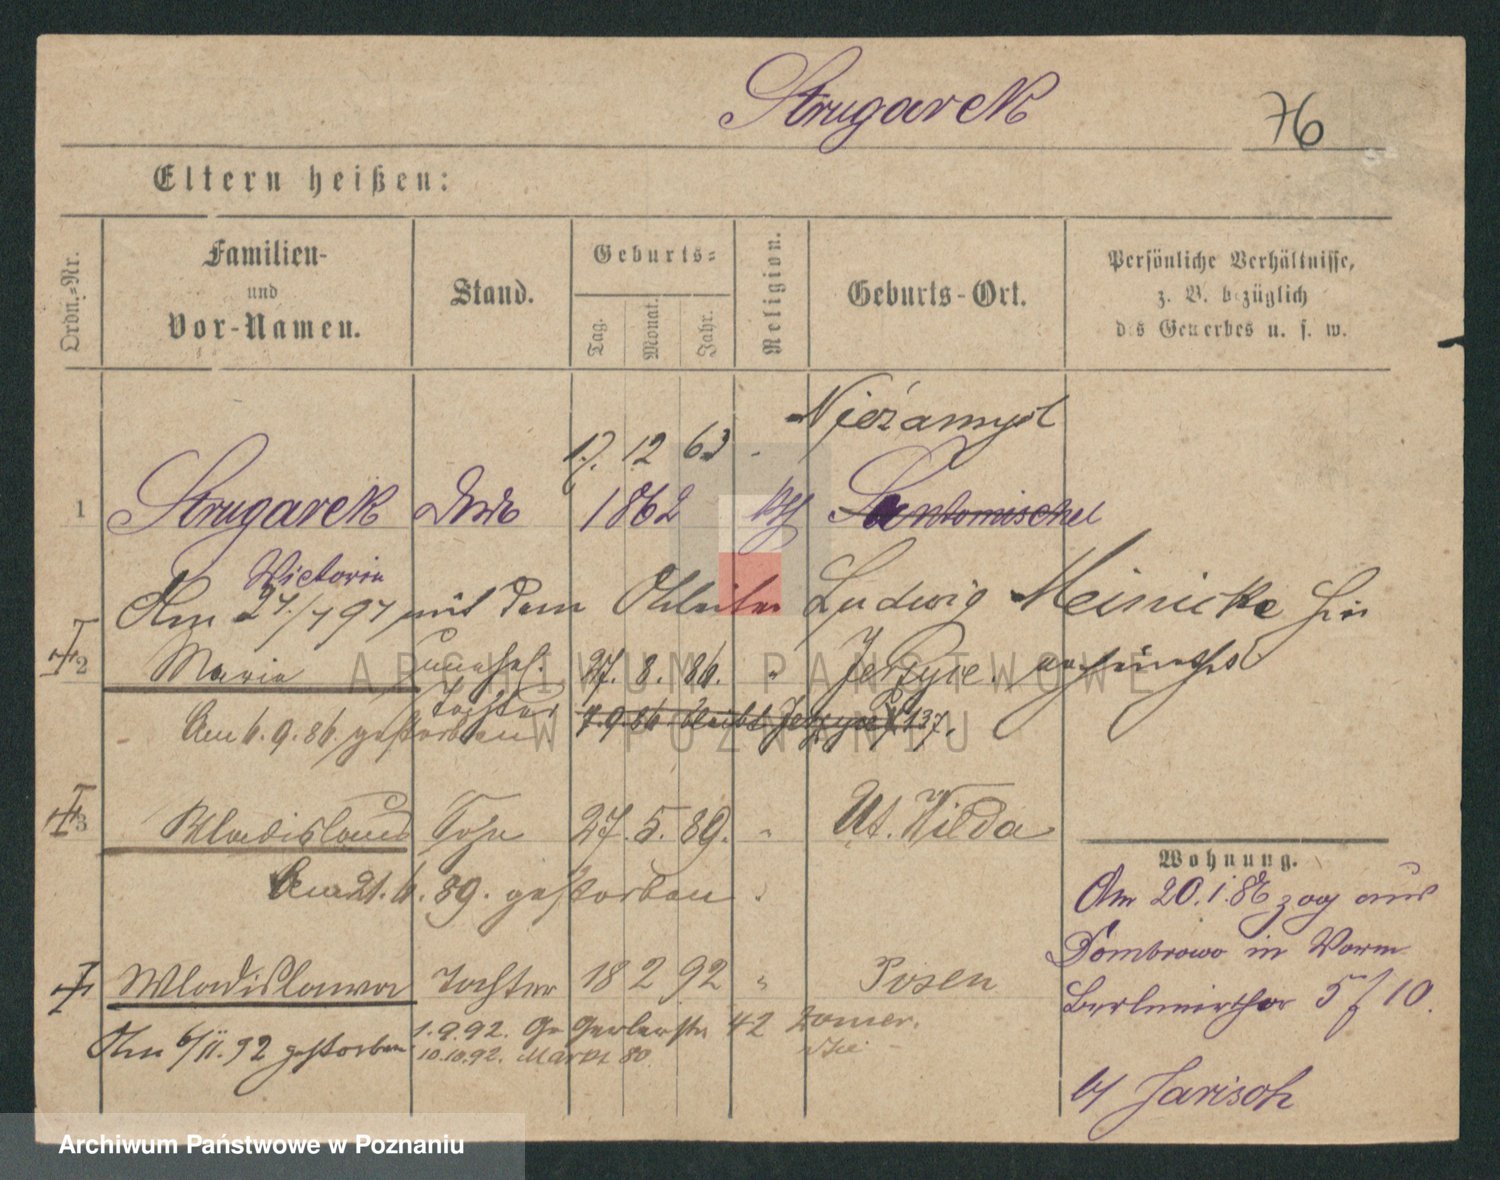 Strugarek
76
Eltern heißen:
Ordn.-Nr.
Familien-
und
Vor-Namen.
Stand.
Geburts-
Tag.
Monat.
Jahr.
Religion.
Geburts-Ort.
Persönliche Verhältnisse,
z. B. bezüglich
des Gewerbes u. s. w.
Nieżamyśl
17. 12 63
1 Strugarek 1862 Santomischel
Victoria
Am 27./7 97 mit dem Ludwig Meinicke hier
2 Maria unehel. 27. 8. 86. " Jerzyce.
Tochter
Am 6. 9. 86. gestorben 7.9.86 bleibt Jerzyce 137.
3 Wladislaus Sohn 27. 5. 89. " Ut. Wilda
Am 21. 6. 89. gestorben
Wladislawa Tochter 18 2 92 " Posen
Am 6/II. 92 gestorben
1.9.92. Gr Gerberstr 42
10.10.92. Markt 80
Wohnung.
Am 20.1.86 zog aus
Dombrowo in Worm
Berlinerthor 5 f 10.
b/ Jarisch
ARCHIWUM PAŃSTWOWE
W POZNANIU
Archiwum Państwowe w Poznaniu